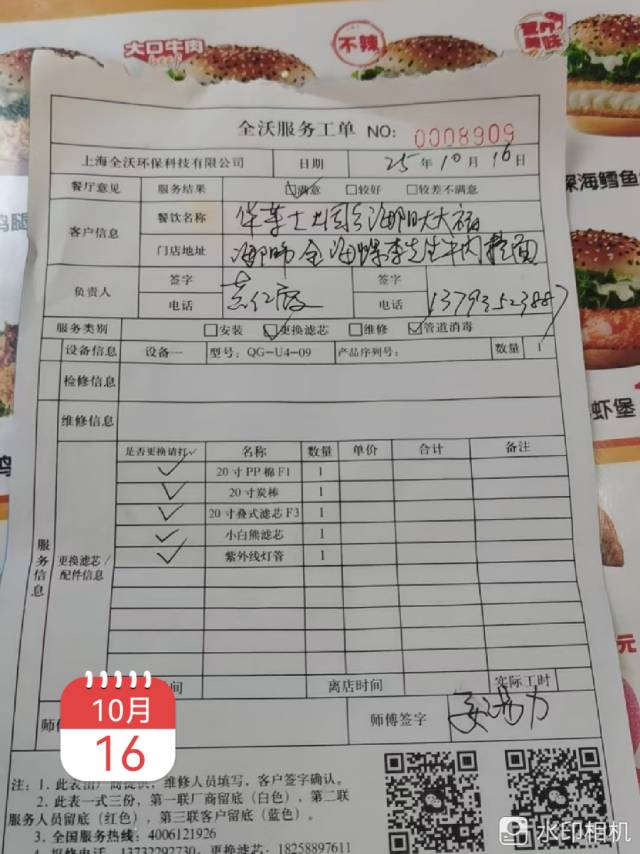 大口牛肉
不辣
全沃服务工单 NO: 0008909
上海全沃环保科技有限公司 日期 25 年 10 月 16 日
深海鳕鱼
餐厅意见 服务结果 ☑满意 □较好 □较差不满意
客户信息 餐饮名称 华莱士
门店地址
负责人 签字 签字
电话 电话 13793523887
服务类别 □安装 ☑更换滤芯 □维修 ☑管道消毒
设备信息 设备一 型号: QG-U4-09 产品序列号: 数量 1
检修信息
虾堡
维修信息
服务信息 更换滤芯/配件信息
是否更换请打✓ 名称 数量 单价 合计 备注
✓ 20寸PP棉F1 1
✓ 20寸炭棒 1
✓ 20寸叠式滤芯F3 1
✓ 小白熊滤芯 1
✓ 紫外线灯管 1
元
间 离店时间 实际工时
师 师傅签字
10月
16
注: 1. 此表由厂商提供, 维修人员填写, 客户签字确认。
2. 此表一式三份, 第一联厂商留底 (白色), 第二联
服务人员留底 (红色), 第三联客户留底 (蓝色)。
3. 全国服务热线: 4006121926
4. 报修电话: 13732292730 更换滤芯: 18258897611
水印相机